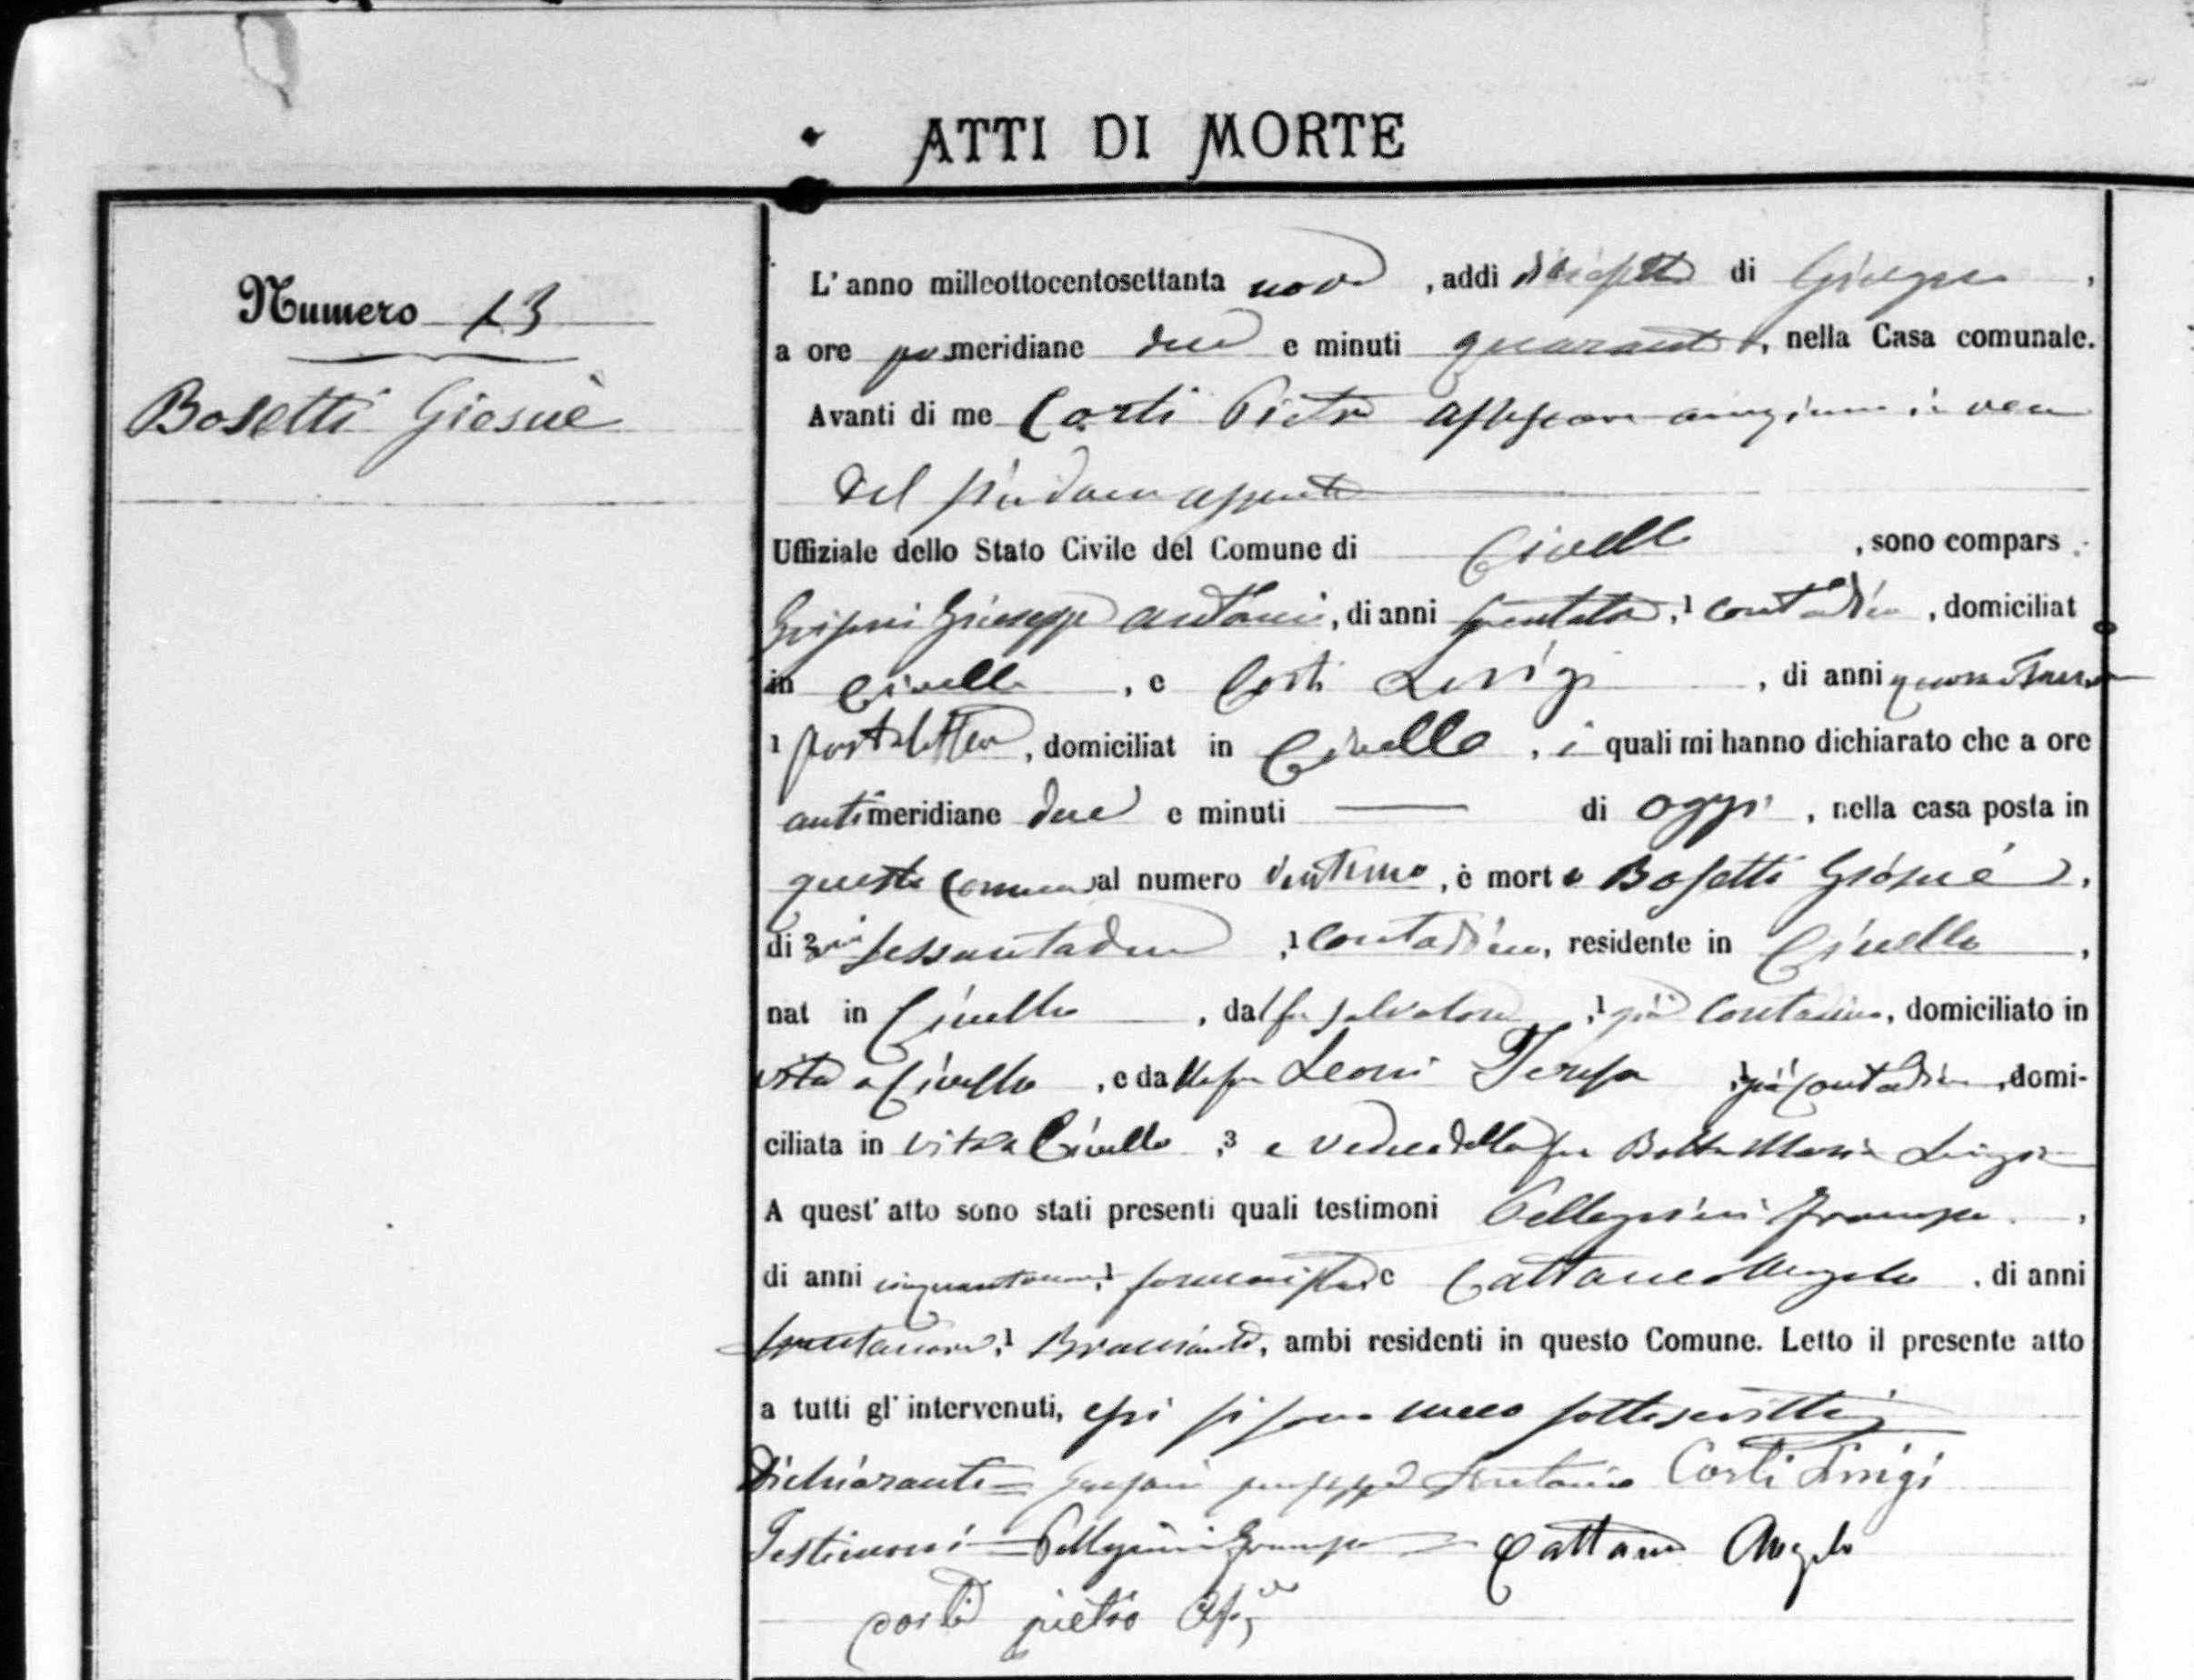 ATTI DI MORTE
Numero 13
Bosetti Giosuè
L'anno milleottocentosettanta nove, addì diciasette di Giugno,
a ore pomeridiane due e minuti quaranta, nella Casa comunale.
Avanti di me Corti Pietro assessore anziano in vece
del sindaco assente
Uffiziale dello Stato Civile del Comune di Civello, sono compars
Giuseppe Antonio, di anni, 1 contadino, domiciliat
in Civello, e Corti Luigi, di anni
1 portalettere, domiciliat in Civello, i quali mi hanno dichiarato che a ore
antimeridiane due e minuti — di oggi, nella casa posta in
questo comune al numero, è morto Bosetti Giosuè,
di 2 anni sessantadue, 1 contadino, residente in Civello,
nat in Civello, dal fu Salvatore, 1 già contadino, domiciliato in
vita a Civello, e dalla fu Leoni Teresa già contadina, domi-
ciliata in vita a Civello, 3 e vedovo della fu Botta Maria Luigia
A quest'atto sono stati presenti quali testimoni Pellegrini,
di anni, 1 e Cattaneo Angelo, di anni
1 Bracciante, ambi residenti in questo Comune. Letto il presente atto
a tutti gl'intervenuti, essi si sono meco sottoscritti
Dichiaranti = giuseppe Antonio Corti Luigi
Testimoni = Pellegrini = Cattaneo Angelo
corti pietro